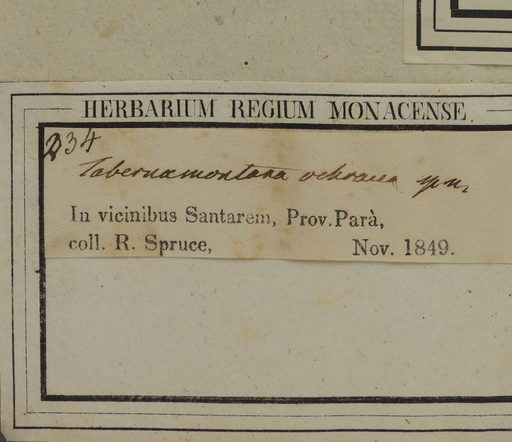 HERBARIUM REGIUM MONACENSE.
234
Tabernæmontana ochracea sp. n.
In vicinibus Santarem, Prov. Parà,
coll. R. Spruce, Nov. 1849.